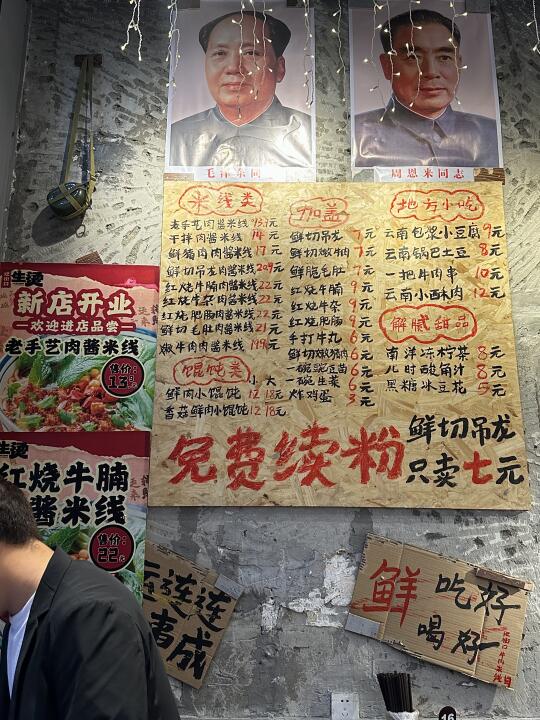 毛泽东同
周恩来同志
米线类
老手艺肉酱米线 13.9元
干拌肉酱米线 14元
鲜猪肉肉酱米线 17元
鲜切吊龙肉酱米线 20.9元
红烧牛腩肉酱米线 22元
红烧牛杂肉酱米线 22元
红烧肥肠肉酱米线 22元
鲜切毛肚肉酱米线 21元
嫩牛肉肉酱米线 19.9元
馄饨类 小 大
鲜肉小馄饨 12 18元
香菇鲜肉小馄饨 12 18元
加盖
鲜切吊龙 7元
鲜切嫩牛肉 7元
鲜脆毛肚 7元
红烧牛腩 9元
红烧牛杂 9元
红烧肥肠 9元
手打牛丸 6元
鲜切嫩猪肉 6元
一碗豌豆苗 6元
一碗生菜 6元
炸鸡蛋 3元
地方小吃
云南包浆小豆腐 9元
云南锅巴土豆 8元
一把牛肉串 10元
云南小酥肉 12元
解腻甜品
南洋冻柠茶 8元
儿时酸角汁 8元
黑糖冰豆花 5元
免费续粉
鲜切吊龙
只卖七元
生烫
新店开业
欢迎进店品尝
老手艺肉酱米线
售价:
生烫
红烧牛腩
酱米线
售价:
22元
连连
事成
鲜 吃好
喝好